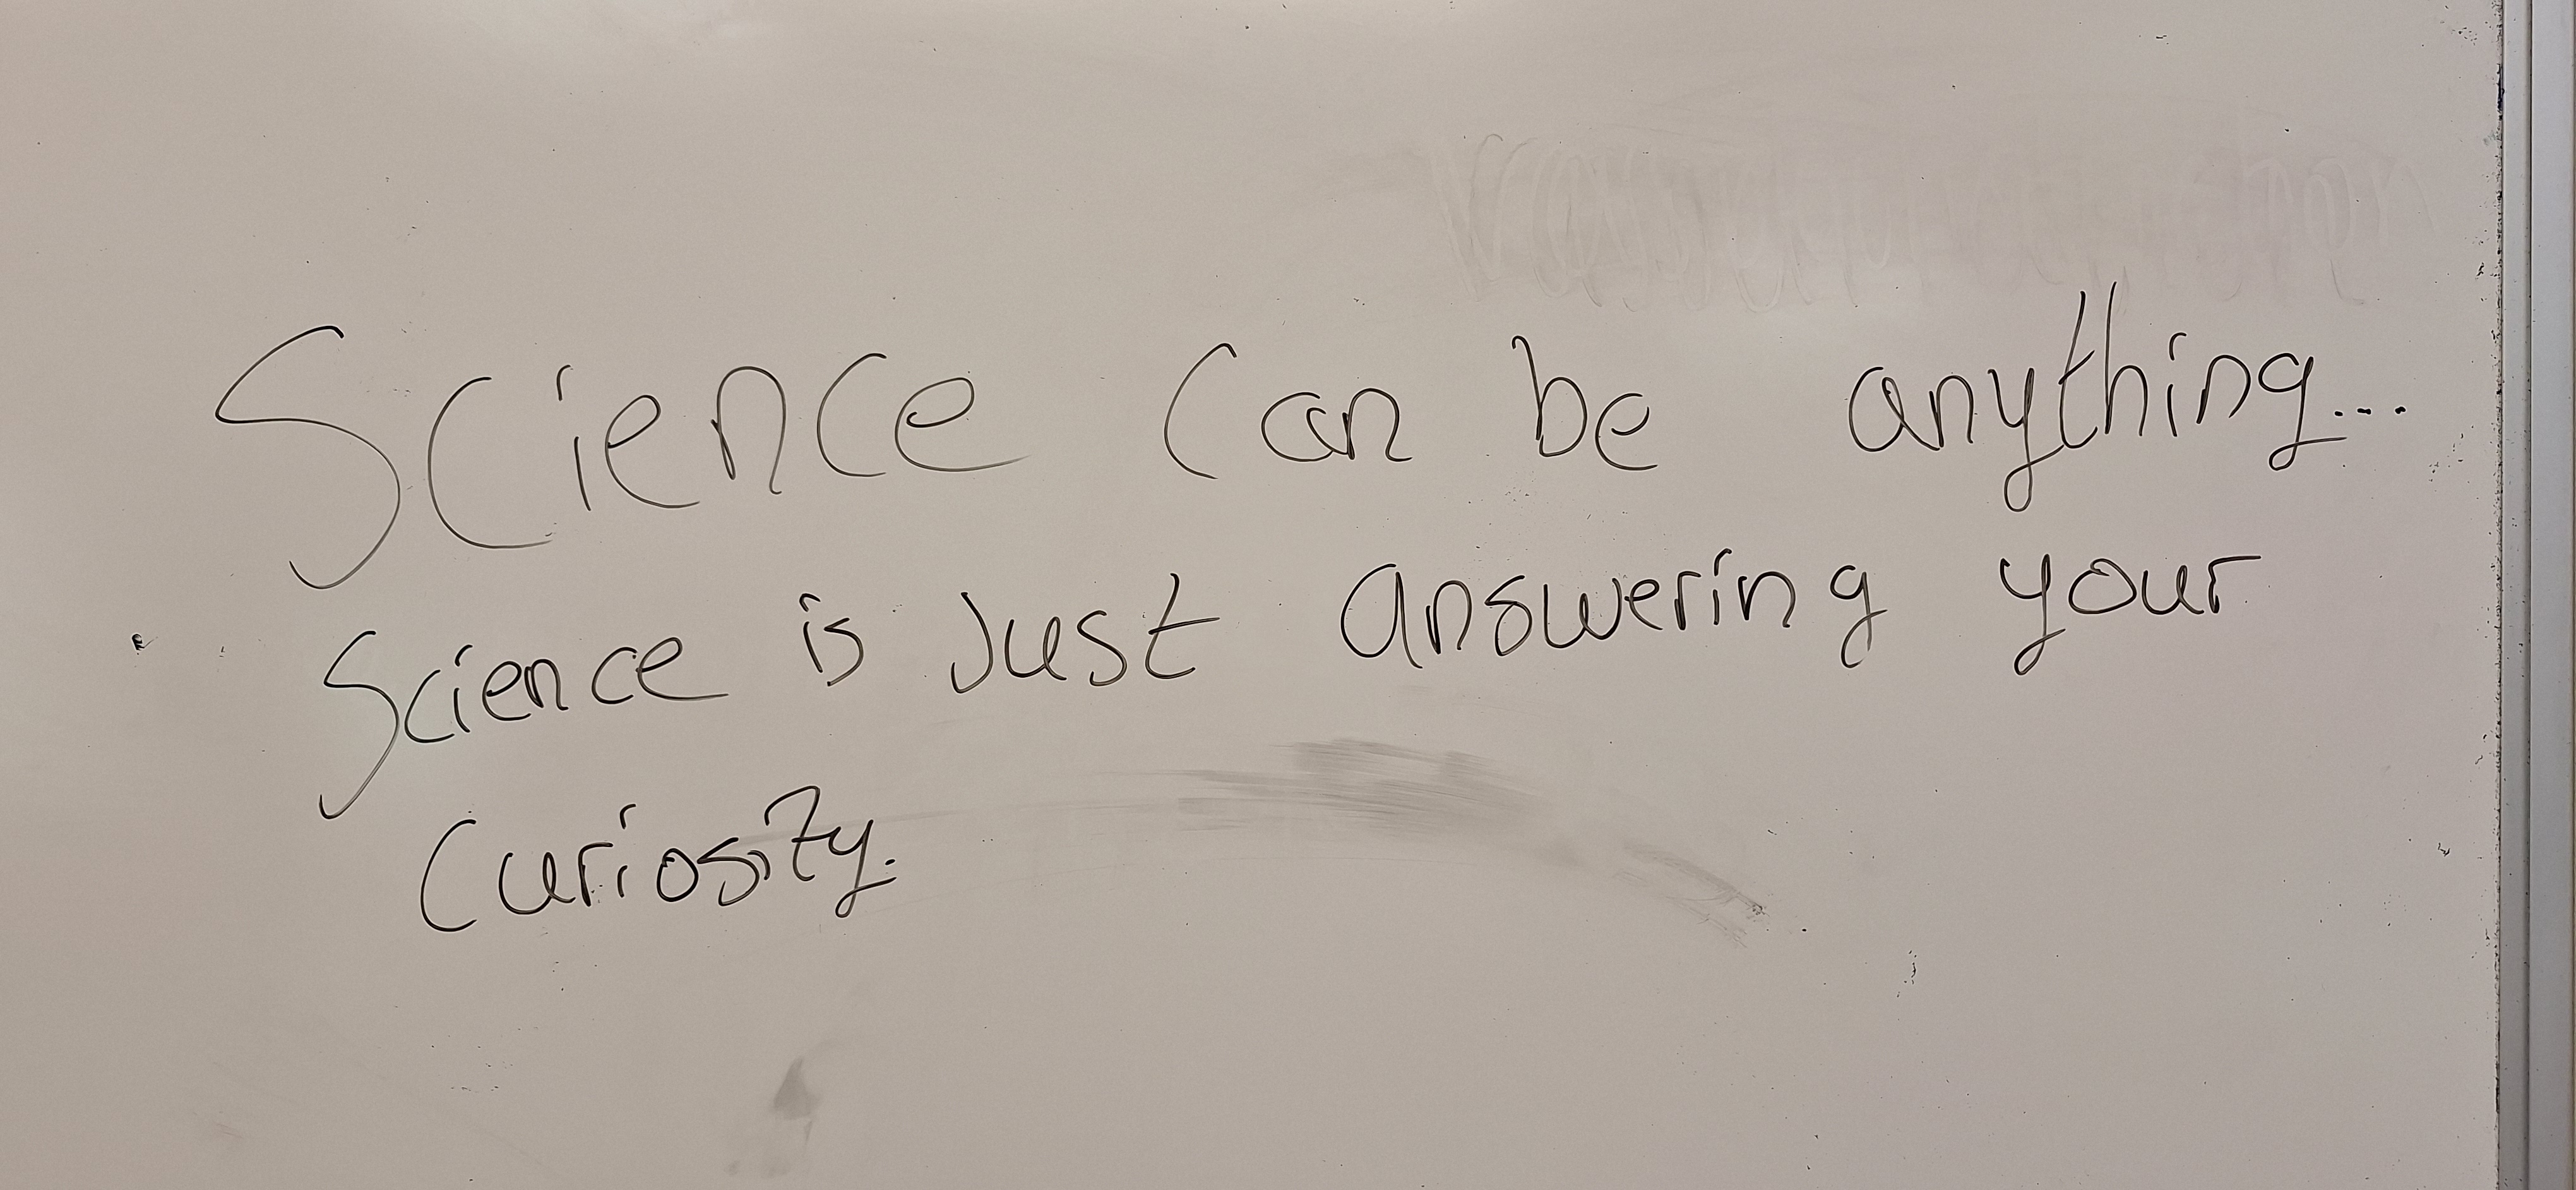 Science can be anything...
Science is Just answering your
Curiosity.